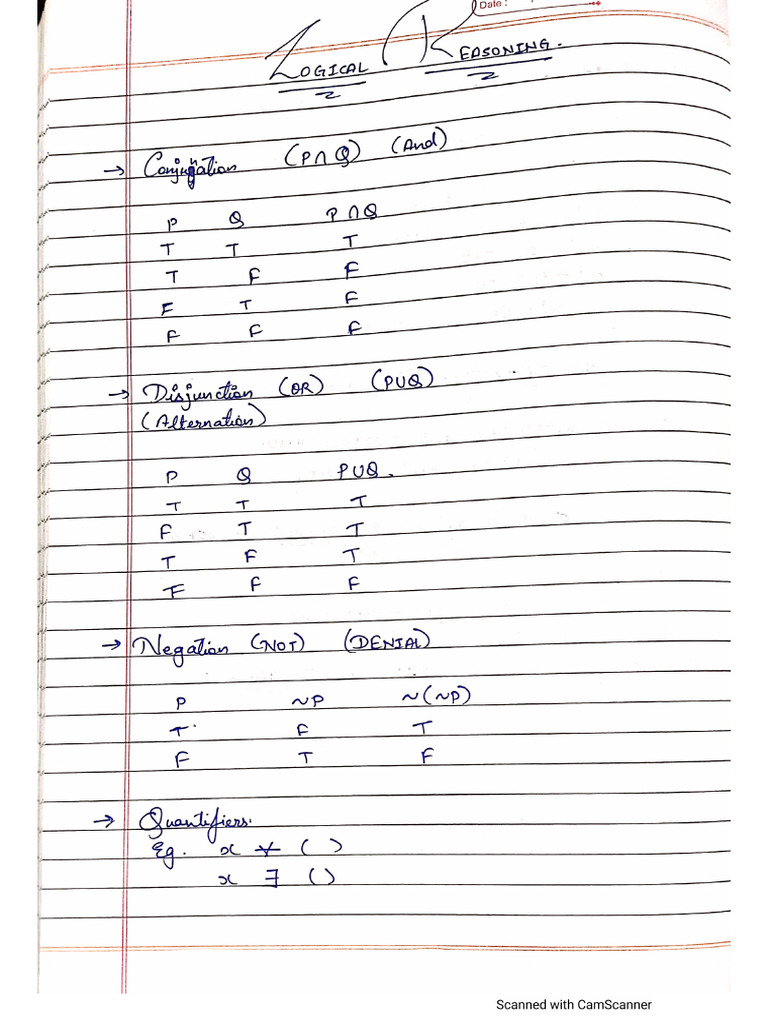 Date :
LOGICAL REASONING.
→ Conjunction (P∩Q) (And)
P Q P∩Q
T T T
T F F
F T F
F F F
→ Disjunction (OR) (PUQ)
(Alternation)
P Q PUQ.
T T T
F T T
T F T
F F F
→ Negation (NOT) (DENIAL)
P ~P ~(~P)
T F T
F T F
→ Quantifiers.
Eg. x ∀ ( )
x ∃ ( )
Scanned with CamScanner